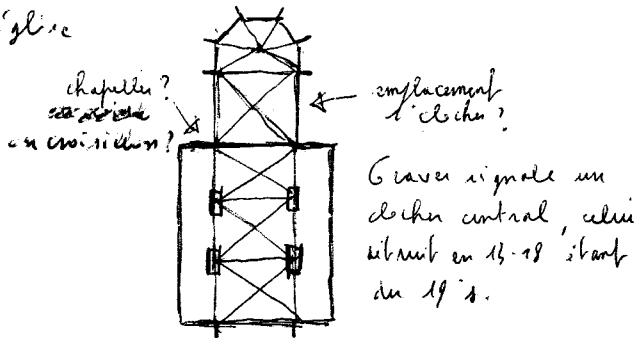 église
chapelles?
ou croisillon?
emplacement
l' clocher?
Graves signale un
clocher central, celui
détruit en 14-18 étant
du 19e s.